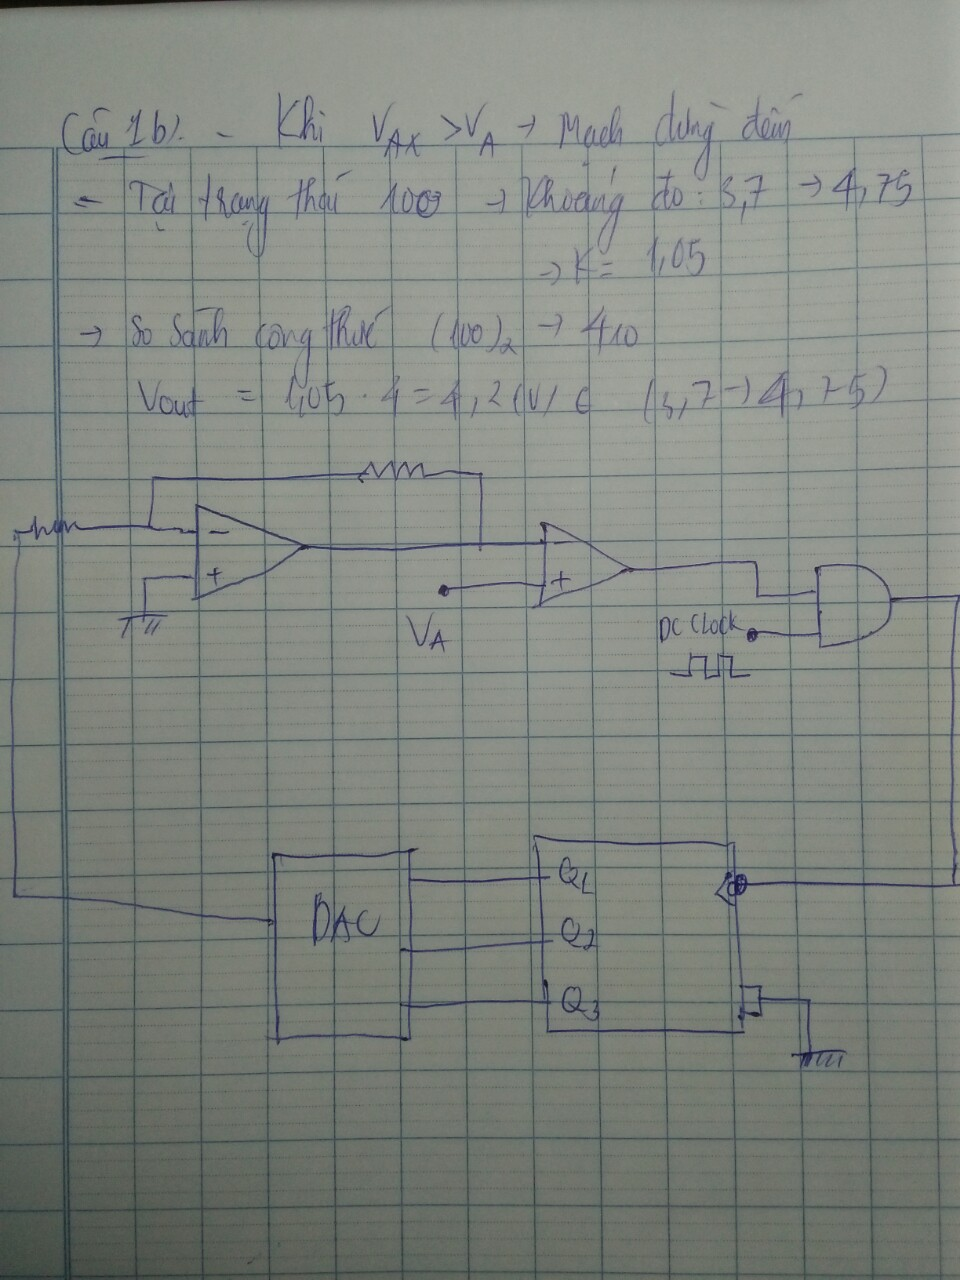 Câu 1b). - Khi VAX > VA → Mạch dừng đếm
- Tại trạng thái 100 → Khoảng đo: 3,7 → 4,75
→ K = 1,05
→ So sánh công thức (100)2 → 410
Vout = 1,05 . 4 = 4,2 (V) ∈ (3,7 → 4,75)
-
+
-
+
VA
DC CLOCK
DAC
Q1
Q2
Q3